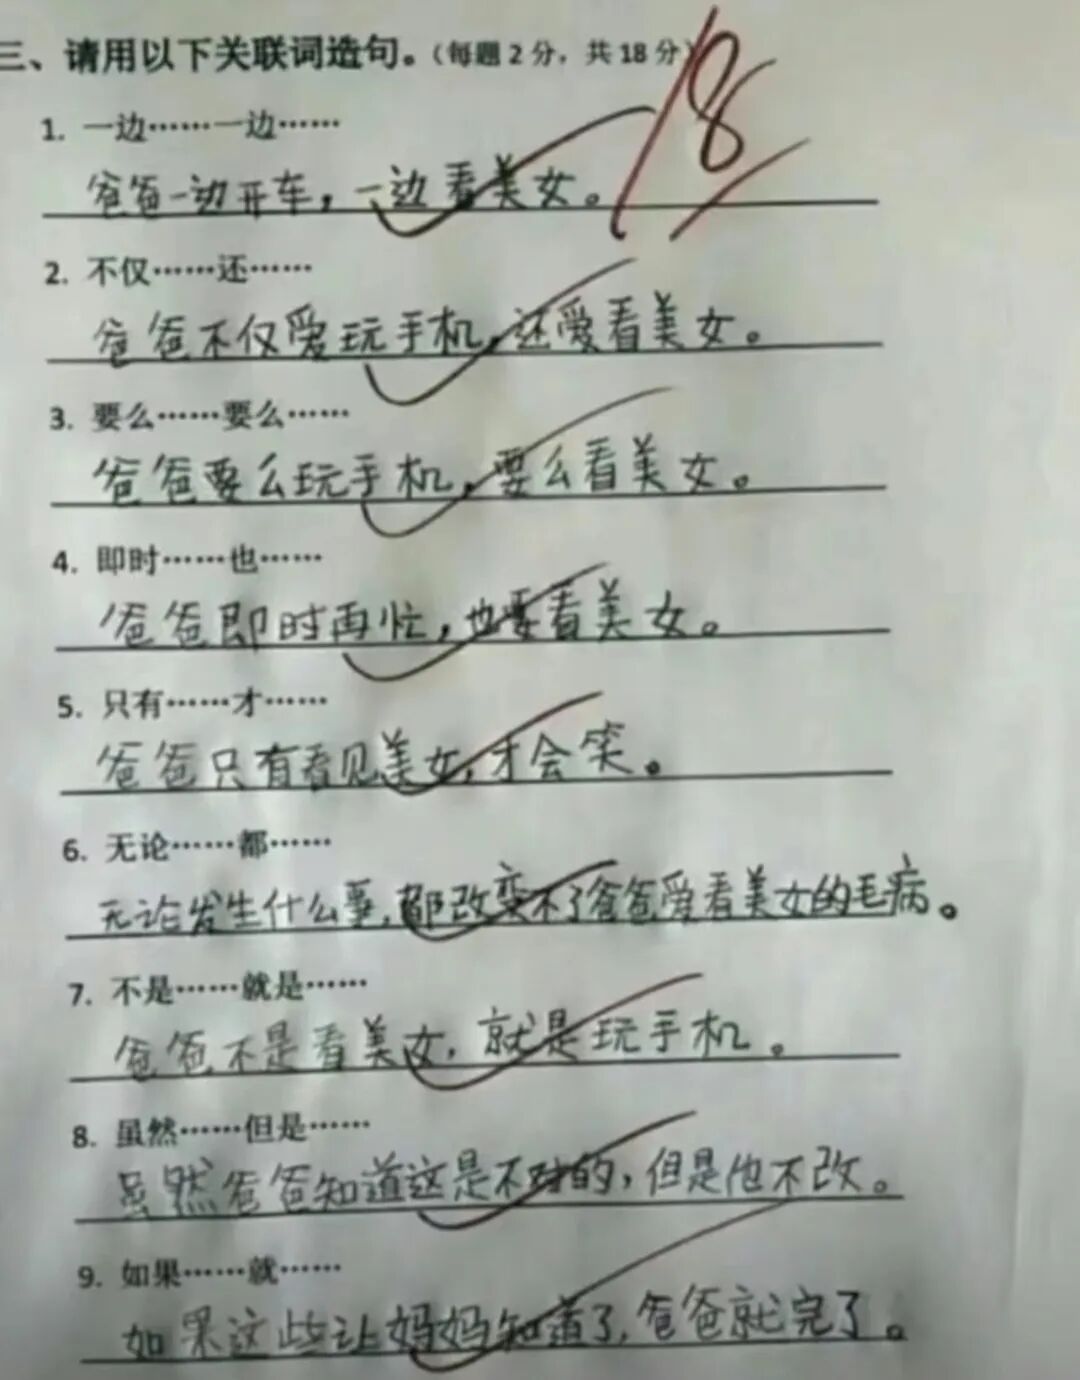 三、请用以下关联词造句。（每题2分，共18分）
18
1. 一边……一边……
爸爸一边开车，一边看美女。
2. 不仅……还……
爸爸不仅爱玩手机，还爱看美女。
3. 要么……要么……
爸爸要么玩手机，要么看美女。
4. 即时……也……
爸爸即时再忙，也要看美女。
5. 只有……才……
爸爸只有看见美女，才会笑。
6. 无论……都……
无论发生什么事，都改变不了爸爸爱看美女的毛病。
7. 不是……就是……
爸爸不是看美女，就是玩手机。
8. 虽然……但是……
虽然爸爸知道这是不对的，但是他不改。
9. 如果……就……
如果这些让妈妈知道了，爸爸就完了。